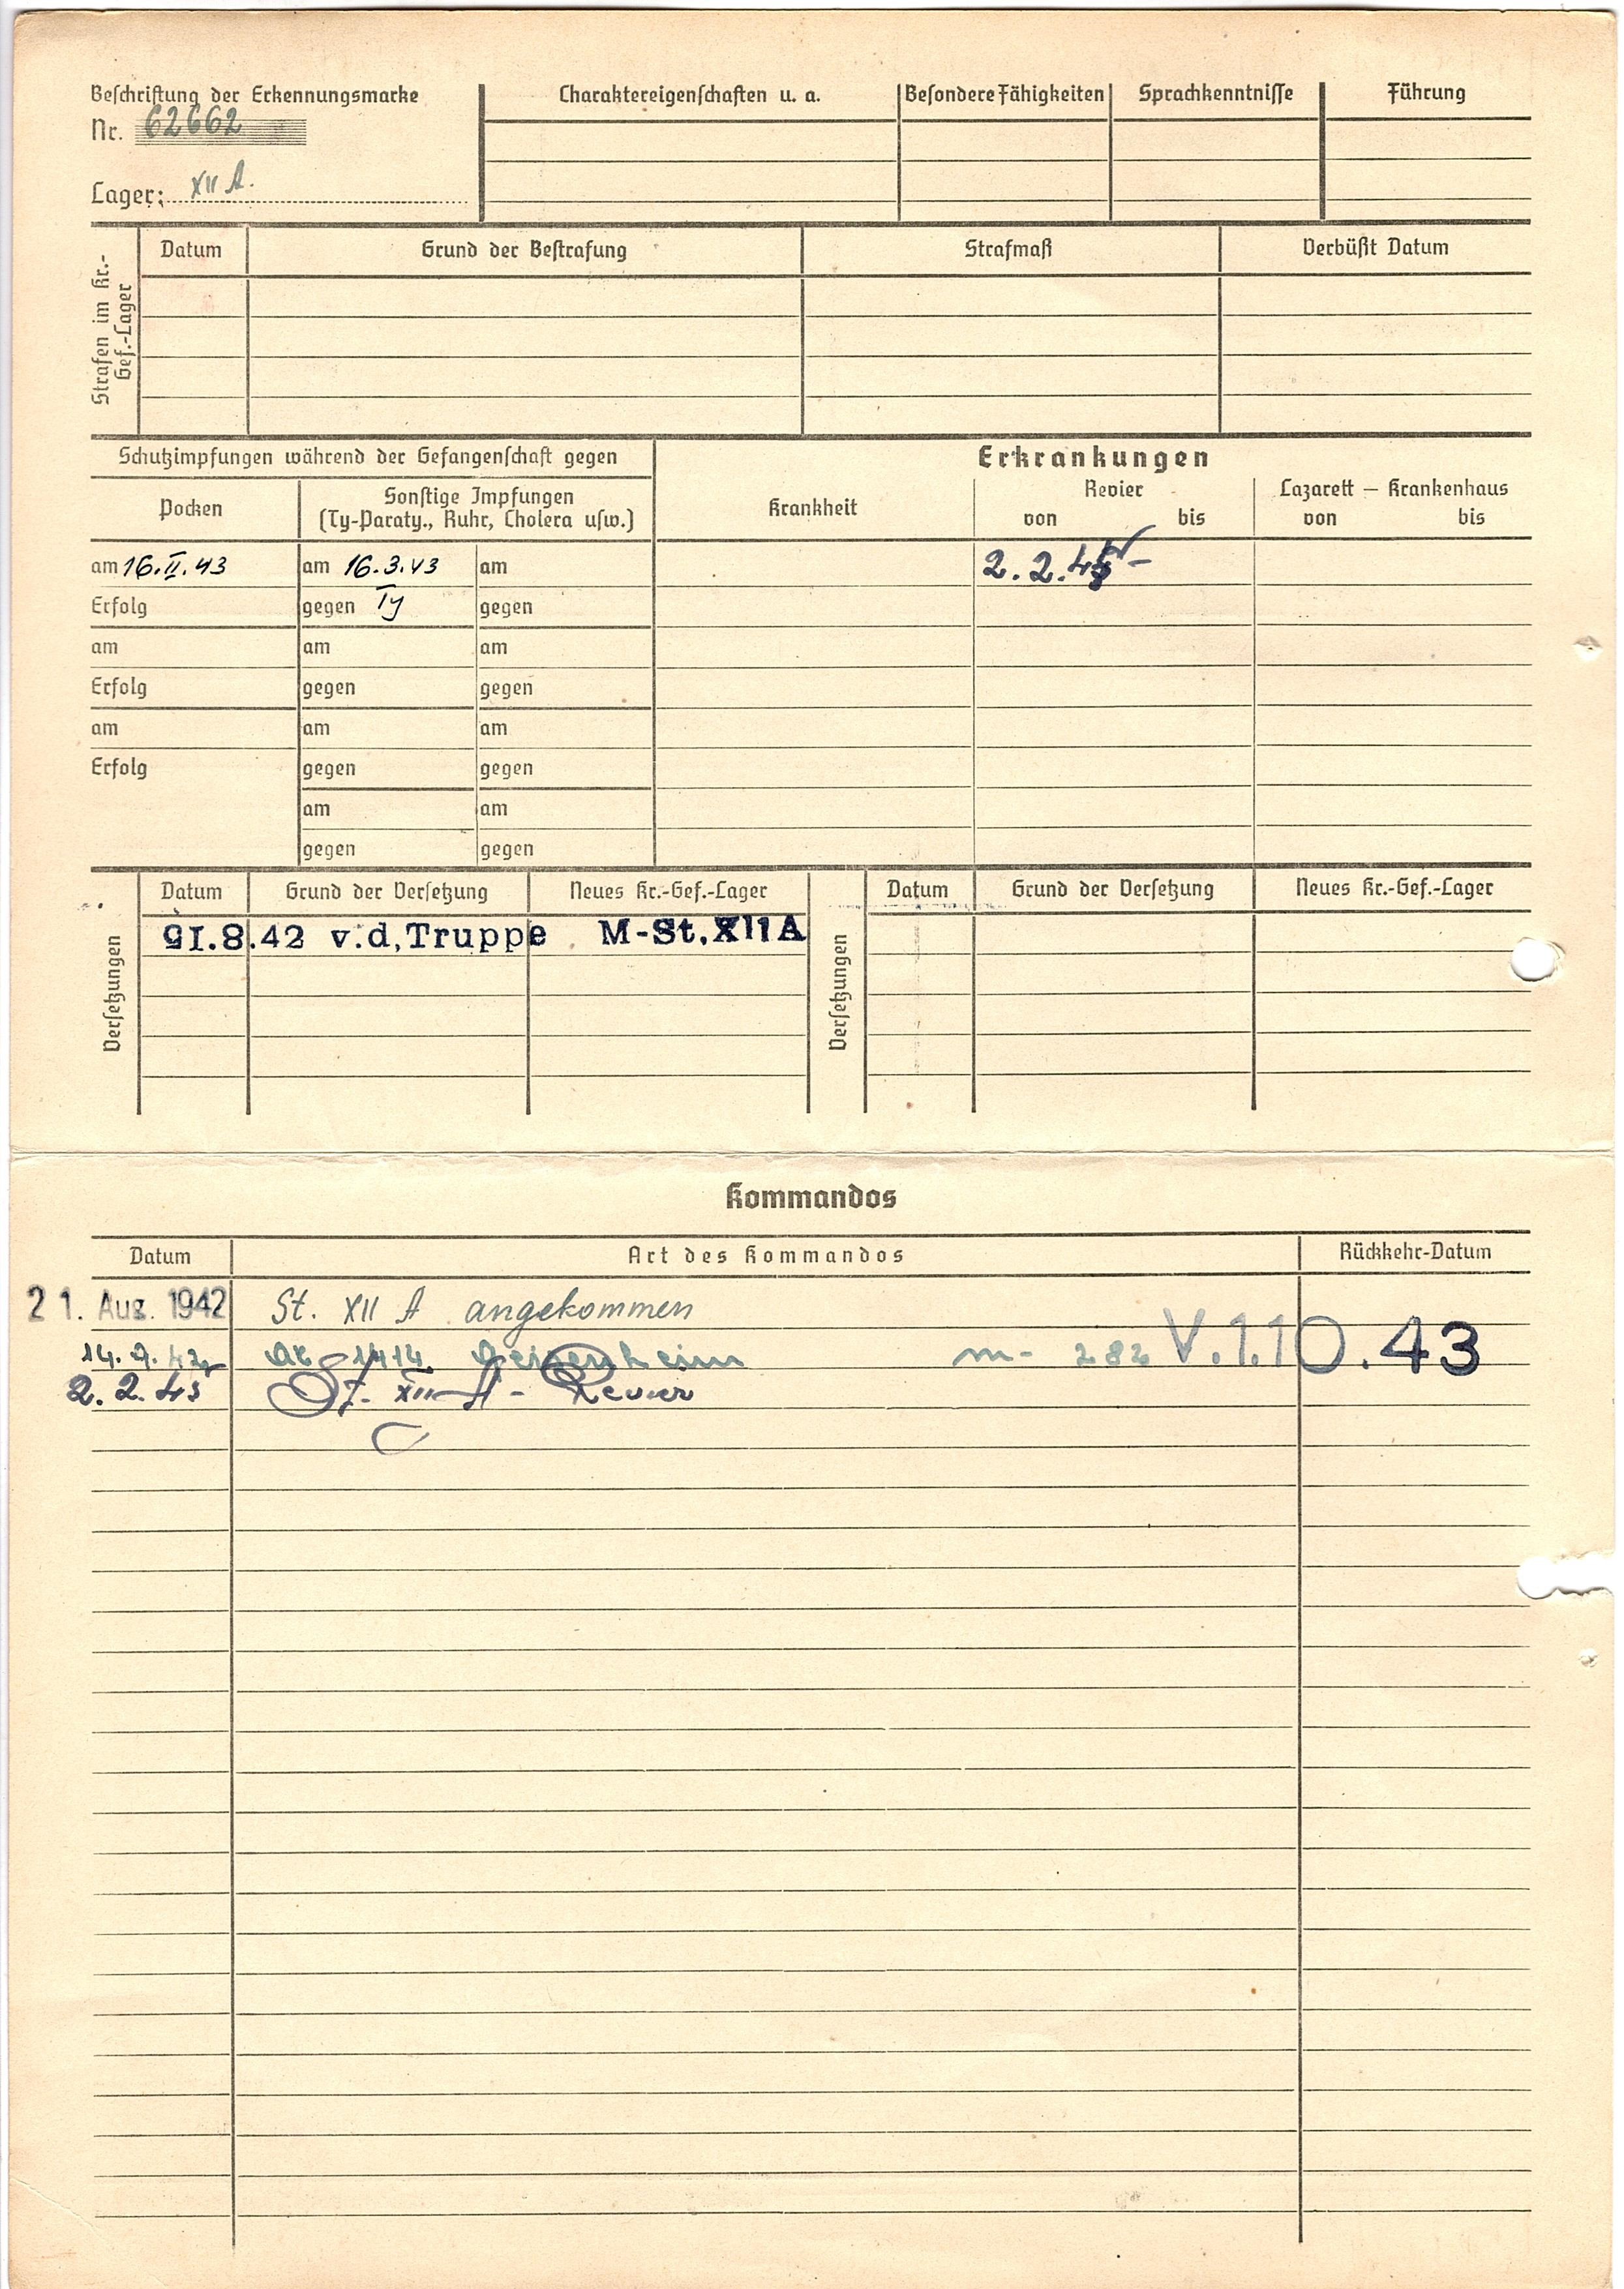 Beschriftung der Erkennungsmarke
Nr. 62662
Lager: XII A.
Charaktereigenschaften u. a.
Besondere Fähigkeiten
Sprachkenntnisse
Führung
Strafen im Kr.-
Gef.-Lager
Datum
Grund der Bestrafung
Strafmaß
Verbüßt Datum
Schutzimpfungen während der Gefangenschaft gegen
Pocken
Sonstige Impfungen
(Ty-Paraty., Ruhr, Cholera usw.)
am 16.II.43
am 16.3.43
am
Erfolg
gegen Ty
gegen
am
am
am
Erfolg
gegen
gegen
am
am
am
Erfolg
gegen
gegen
am
am
gegen
gegen
Erkrankungen
Krankheit
Revier
von bis
Lazarett – Krankenhaus
von bis
2.2.
Versetzungen
Datum
Grund der Versetzung
Neues Kr.-Gef.-Lager
8.42 v.d,Truppe M-St.XIIA
Versetzungen
Datum
Grund der Versetzung
Neues Kr.-Gef.-Lager
Kommandos
Datum
Art des Kommandos
Rückkehr-Datum
21. Aug. 1942 St. XII A angekommen
14.9.42 1414 m- 282 V.1.10.43
2.2.43 St. XII A - Revier